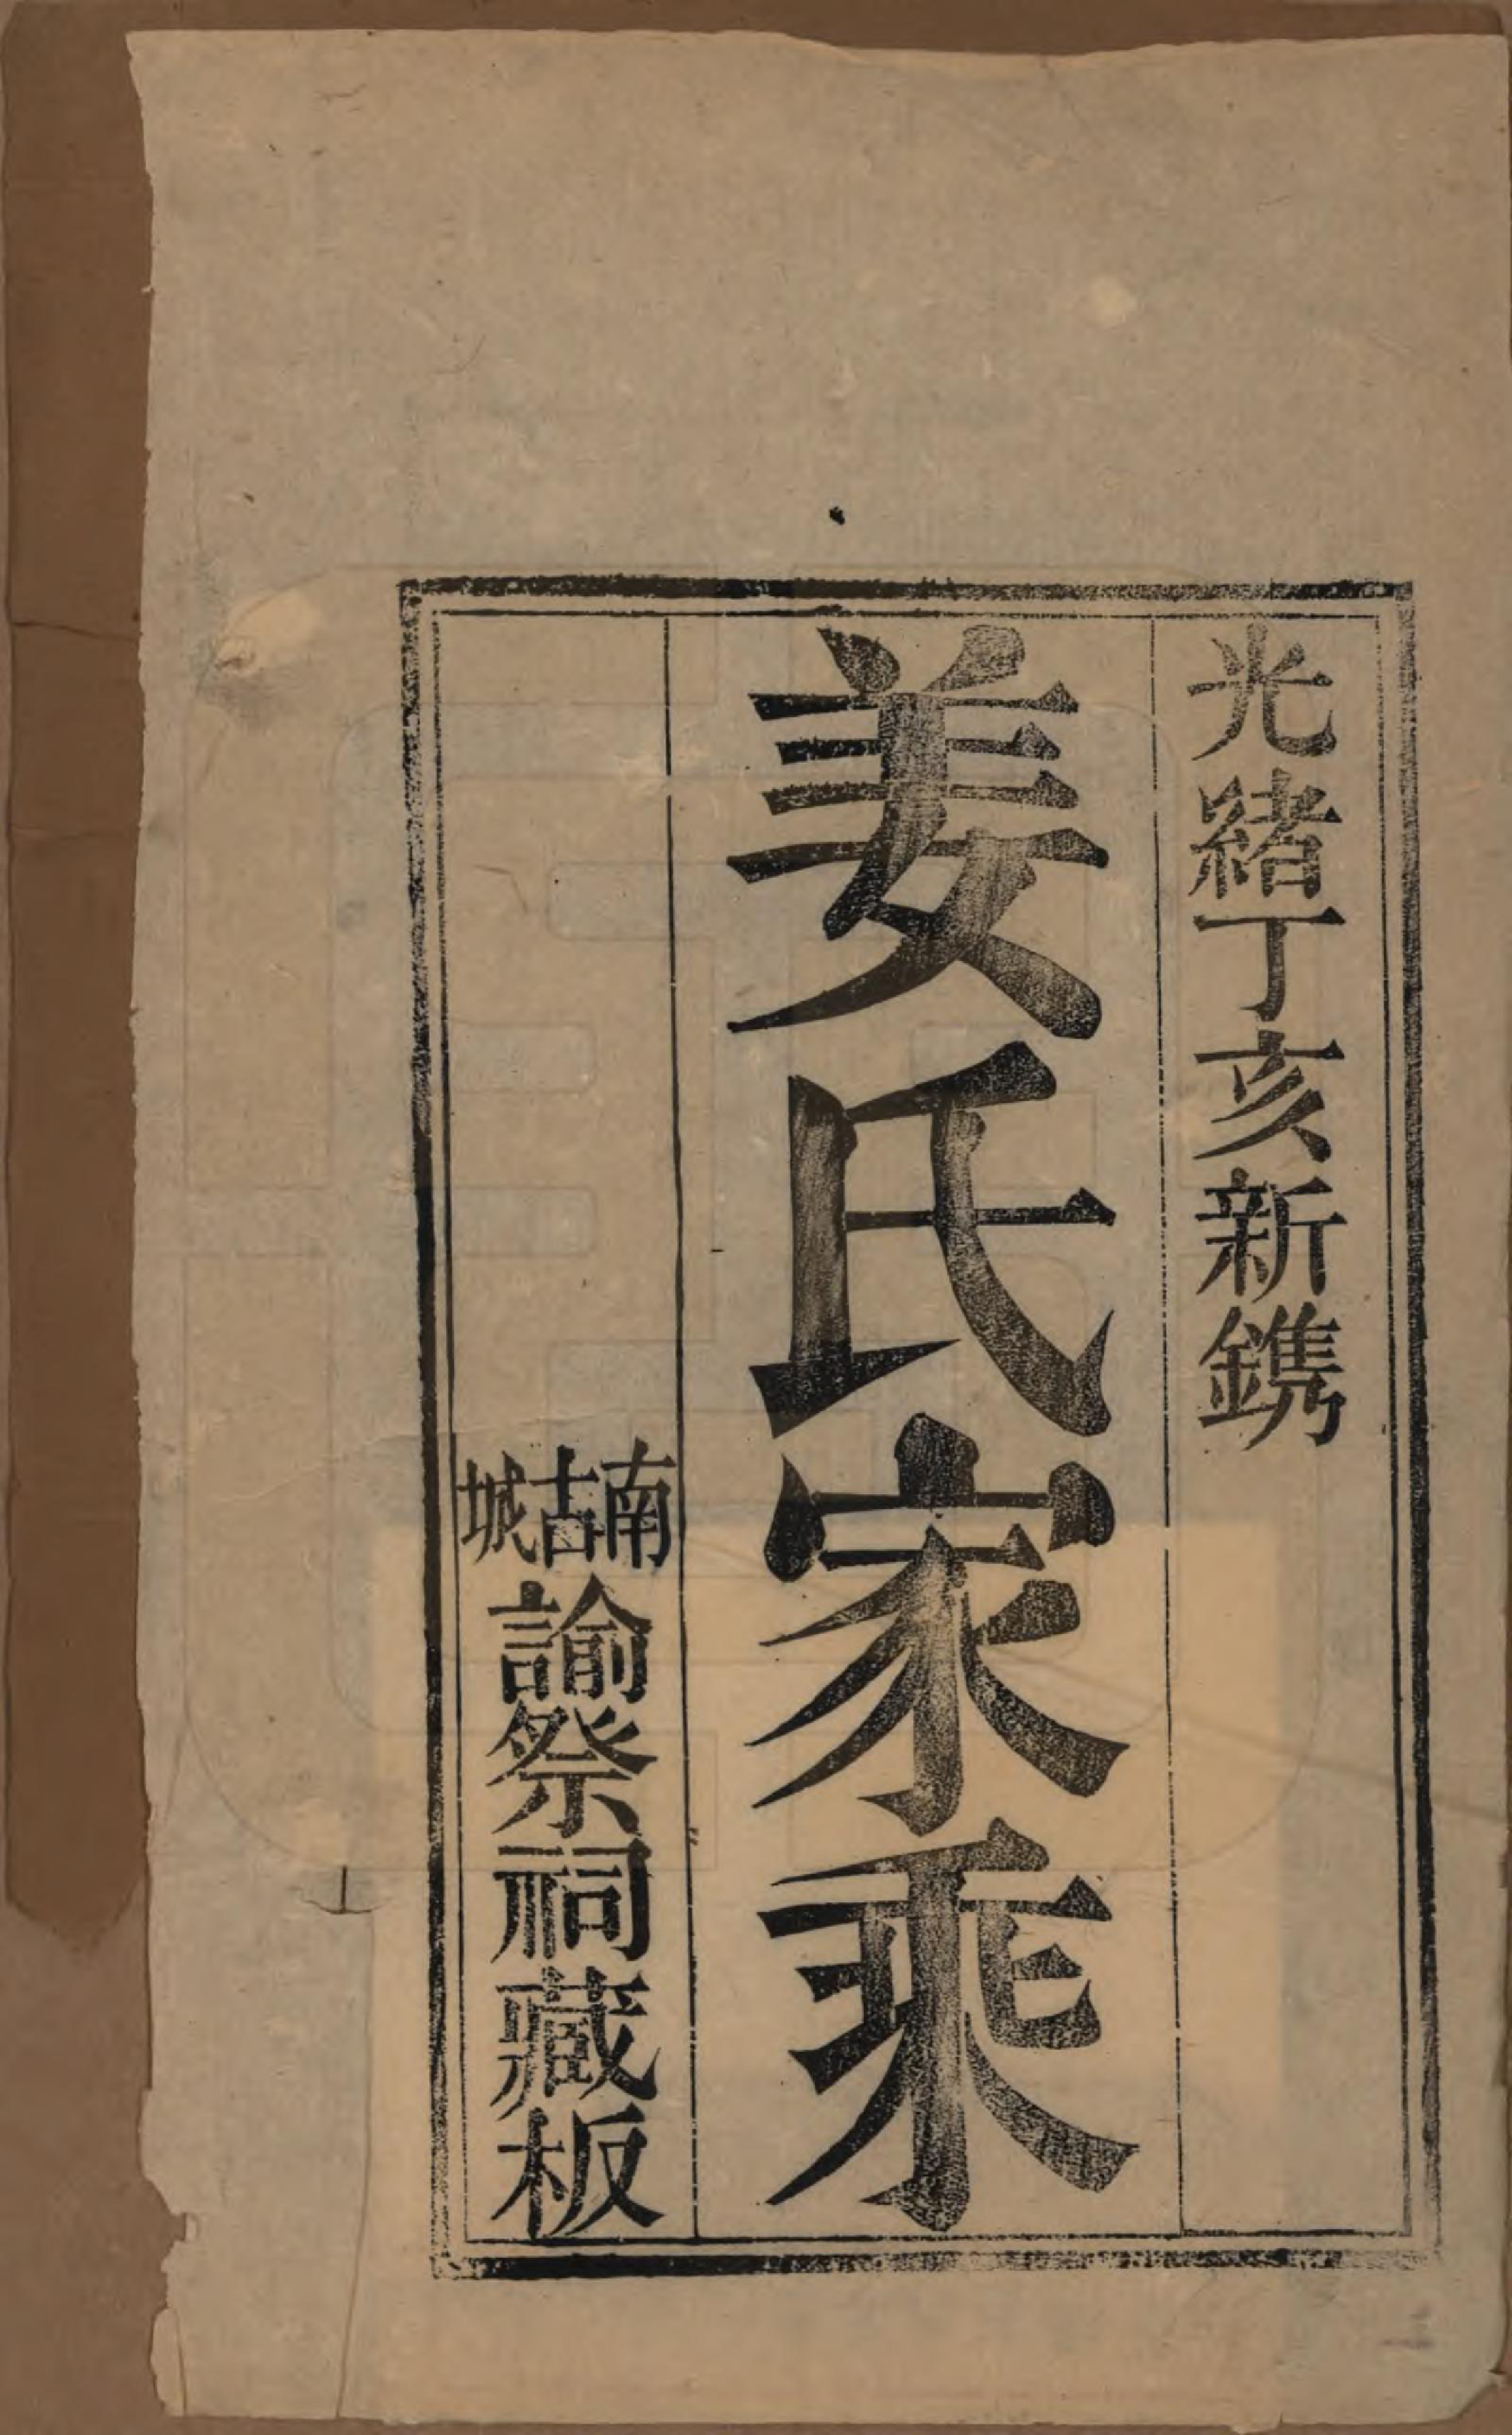 光緒丁亥新鐫
姜氏家乘
南喆城諭祭祠藏板